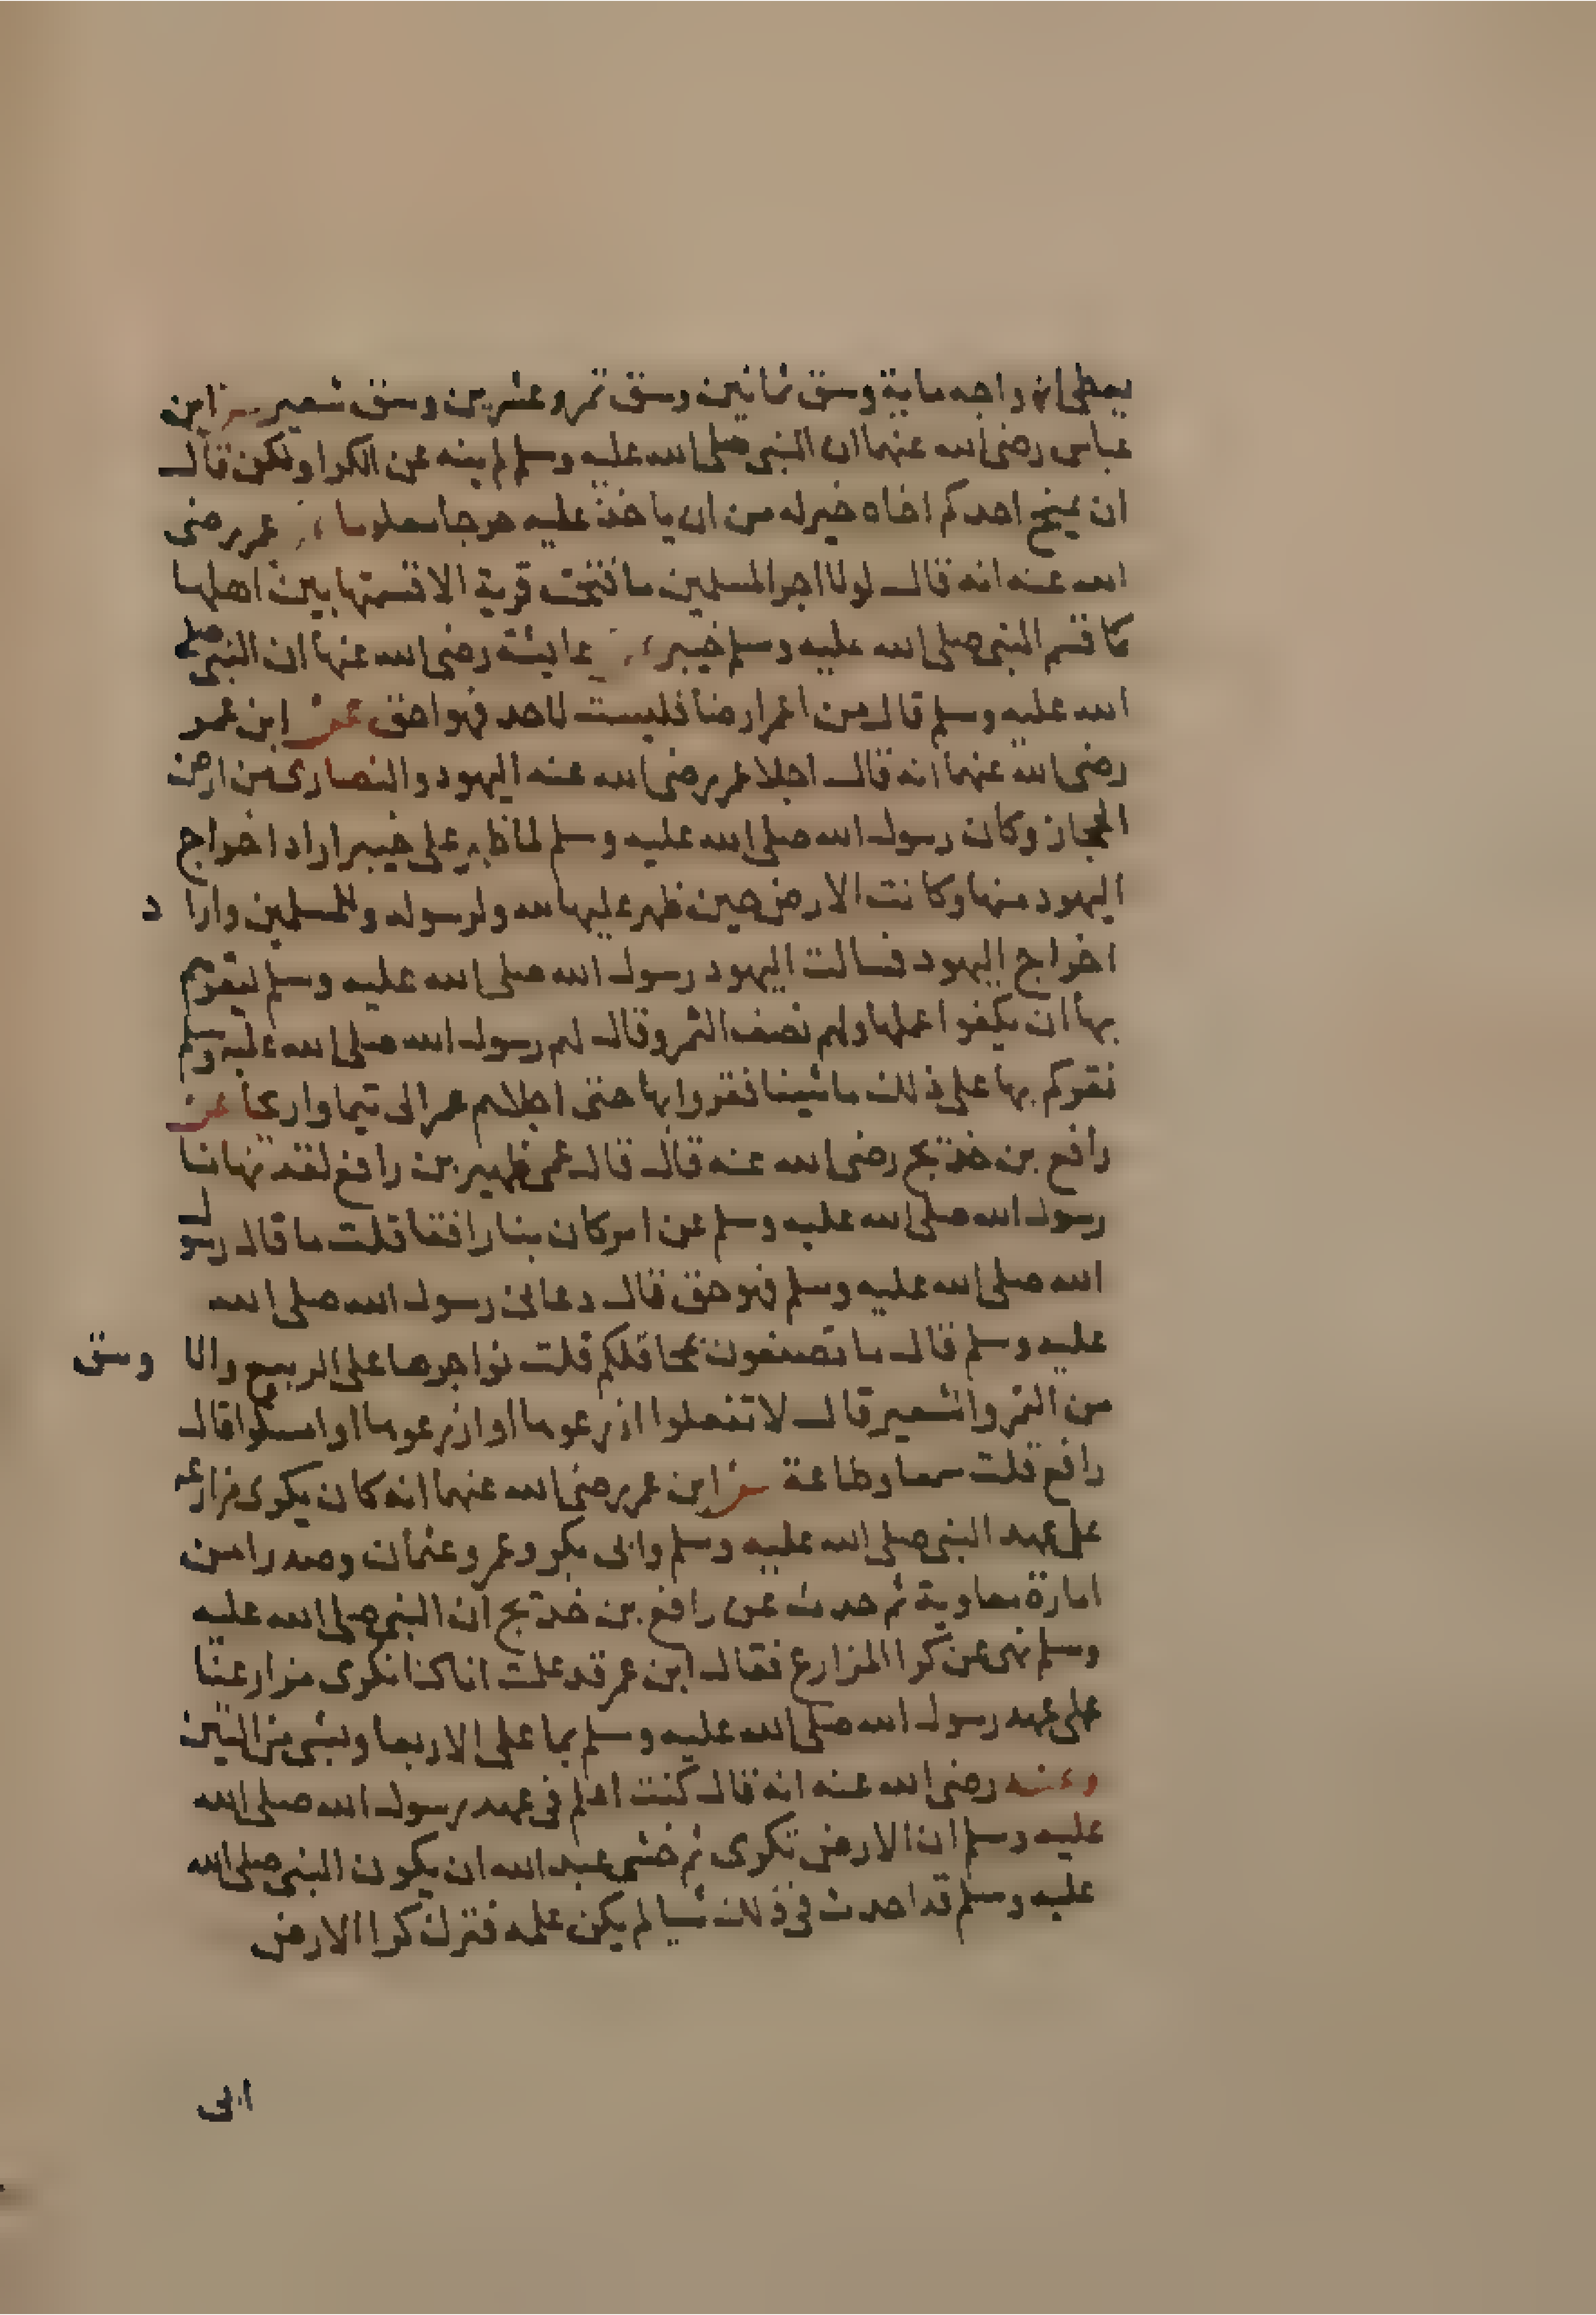 يعطى ازواجه ماية وسق ثمانين وسق تمر وعشرين وسق شعير عن ابن
عباس رضى الله عنهما ان النبى صلى الله عليه وسلم لم ينه عن الكرا ولكن قال
ان يمنح احدكم اخاه خير له من ان ياخذ عليه خرجا معلوما عمر رضى
الله عنه انه قال لولا اخر المسلمين ما فتحت قرية الا قسمتها بين اهلها
كما قسم النبى صلى الله عليه وسلم خيبر عايشة رضى الله عنها ان النبى صلى
الله عليه وسلم قال من اعمر ارضا فليست لاحد فهو احق عن ابن عمر
رضى الله عنهما انه قال اجلا عمر رضى الله عنه اليهود والنصارى من ارض
الحجاز وكان رسول الله صلى الله عليه وسلم لما ظهر على خيبر اراد اخراج
اليهود منها وكانت الارض حين ظهر عليها لله ولرسوله وللمسلمين واراد
اخراج اليهود فسالت اليهود رسول الله صلى الله عليه وسلم ليقرهم
بها ان يكفوا عملها ولهم نصف الثمر وقال لهم رسول الله صلى الله عليه وسلم
نقركم بها على ذلك ما شينا فقروا بها حتى اجلاهم عمر الى تيما واريحا عن
رافع بن خديج رضى الله عنه قال قال عمى ظهير بن رافع لقد نهانا
رسول الله صلى الله عليه وسلم عن امر كان بنا رافقا قلت ما قال رسول
الله صلى الله عليه وسلم فهو حق قال دعانى رسول الله صلى الله
عليه وسلم قال ما تصنعون بمحاقلكم قلت نواجرها على الربيع والا وسق
من التمر والشعير قال لا تفعلوا ازرعوها او ازرعوها او امسكوا قال
رافع قلت سمعا وطاعة عن ابن عمر رضى الله عنهما انه كان يكرى مزارعه
على عهد النبى صلى الله عليه وسلم وابى بكر وعمر وعثمان وصدرا من
امارة معاوية ثم حدث عن رافع بن خديج ان النبى صلى الله عليه
وسلم نهى عن كرا المزارع فقال ابن عمر قد علمت انا كنا نكرى مزارعنا
على عهد رسول الله صلى الله عليه وسلم بما على الاربعا وبشى من التبن
وعنه رضى الله عنه انه قال كنت اعلم فى عهد رسول الله صلى الله
عليه وسلم ان الارض تكرى ثم خشى عبد الله ان يكون النبى صلى الله
عليه وسلم قد احدث فى ذلك شيا لم يكن علمه فترك كرا الارض
ابى